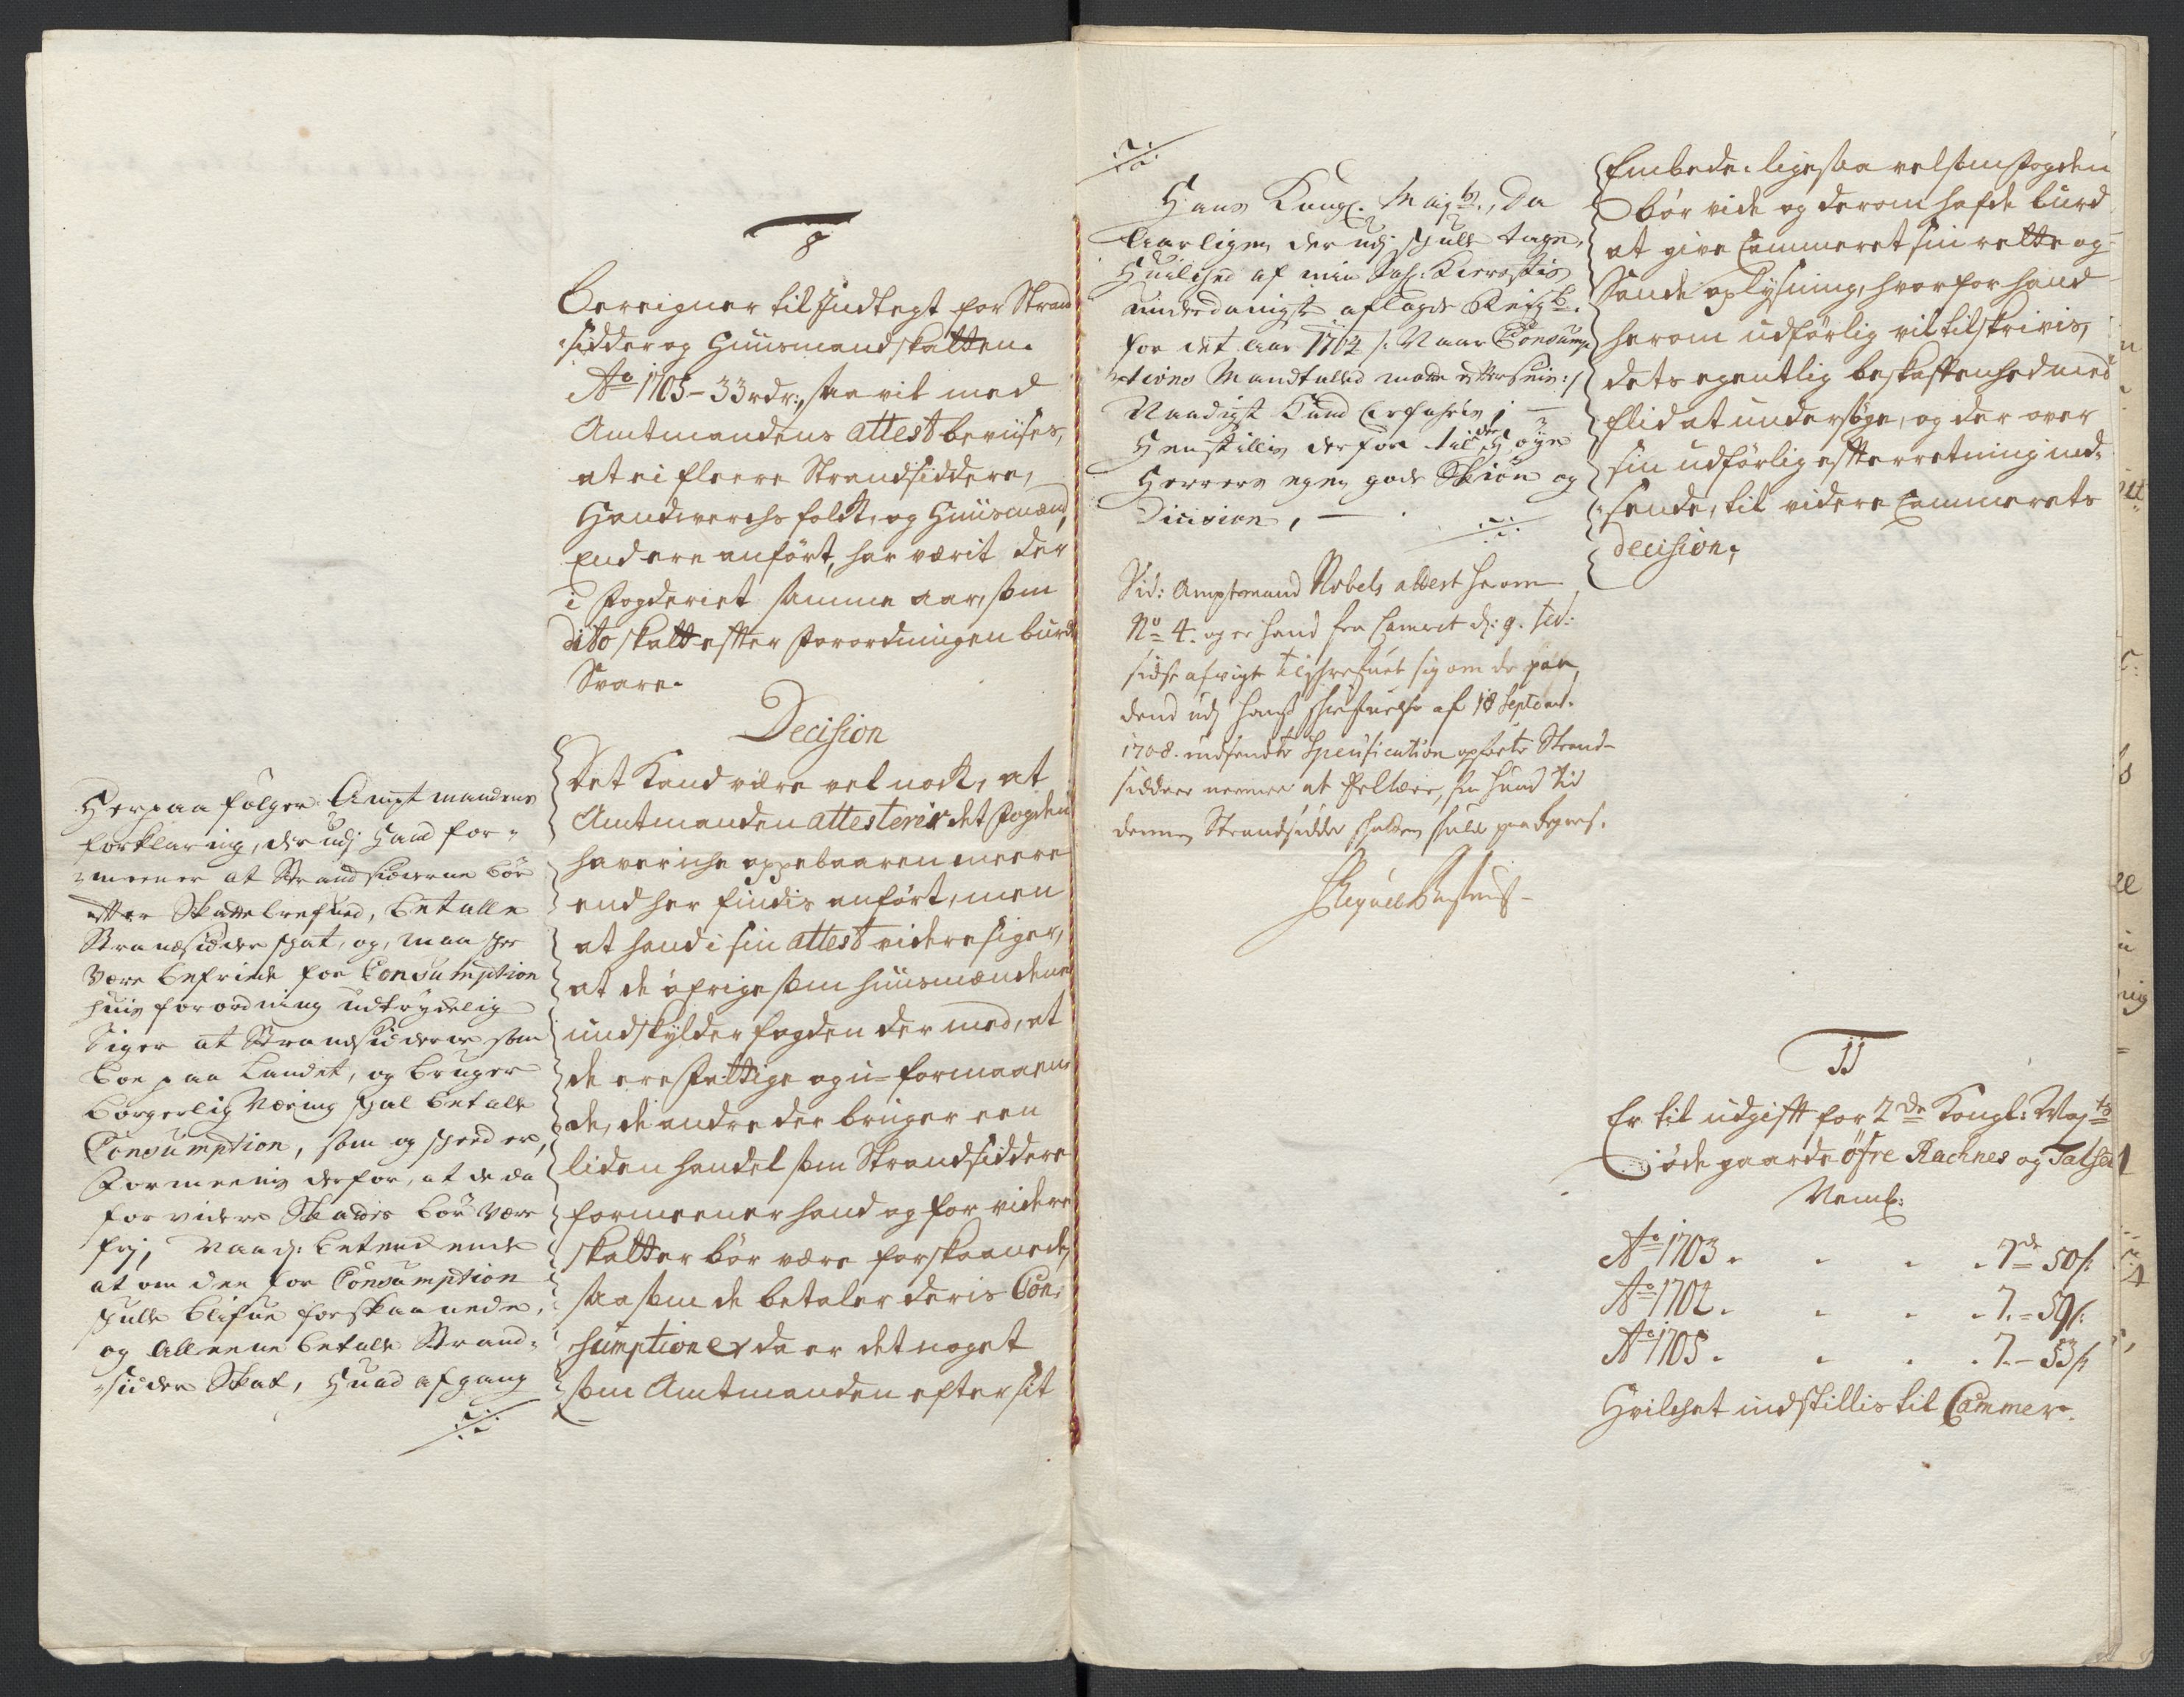 8
Bereigner til Indtegt for Strand
sidder og Huusmandskatten.
Ao 1705 - 33 rdr:, saa vil med
Amtmandens attest beviises,
at ei fleere Strandsiddere,
Handverchs folck, og Huusmænd,
end ere anført, har værit der
i fogderiet samme aar, som
dito skatt effter forordningen burde
Svare.
Decision
Det kand være vel nock, at
Amtmanden attesterer det fogden
haver iche oppebaaren meere
end her findis anført, men
at hand i sin attest videre siger,
at de øfrige som huusmændene
undskylder fogden der med, at
de ere fattige og u-formaaen-
de, de andre der bruger een
liden handel som Strandsiddere
formeener hand og for videre
skatter bør være forskaaned,
saasom de betaler deris Con-
sumptioner da er det noget
som Amtmanden efter sit
Herpaa følger Amptmandens
forklaring, der udj hand for-
meener at Strandsidderne bør
efter Skattebrefued, betalle
Strandsidder skat, og, maa skee
være befriede for Consumption
huis forordning udtrydelig
Siger at Strandsiddere som
boe paa Landet, og bruger
borgerlig Næring skal betalle
Consumption, som og skeed er,
Formeenis derfor, at de da
for videre Skatter bør være
frj, Naad: betenckende
at om den for Consumption
skulle blifue forskaanede,
og alleene betalle Strand-
sidder Skat, huad afgang
./.
./.
Hans Kongl. Mayts., da
Aarligen der udj skulle tage,
Huilched af min Sal: Kierestis
underdanigst aflagde Reigsk.
for det Aar 1702 /: Naar Consump-
tions Mandtalled motte eftersees:/
Naadigst kand Erfahris; -
Henstillis derfor til de høye
Herrers egen gode Skiøn og
Dicision, -
./.
Vid: Amptmand Nobels attest herom
No 4. og er hand fra Cameret d: 9. feb:
sidst afvigt tilskrefuet sig om de paa
dend udj hans skrifuelse af 18 Septembr.
1708. indsendte Specification opførte Strand-
siddere
denne Strandsidder skatten skulle
Embede, ligesaa vel som fogden
bør vide og derom hafde burd
at give Cammeret sin rette og
Sande oplysning, hvorfor hand
herom udførlig vil tilskrivis,
dets egentlig beskaffenhed med
flid at undersøge, og der over
sin udførlig efterretning ind-
sende, til videre Cammerets
decision;
11
Er til udgift for 2de Kongl: Mayts
øde gaarde Øfre Rachnes og Talse
Neml:
Ao 1703 . . . . 7 rdr 50 s:
Ao 1704 . . . . 7. - 50 s:
Ao 1705 . . . . 7. - 53 s:
Hvilchet indstillis til Cammer.